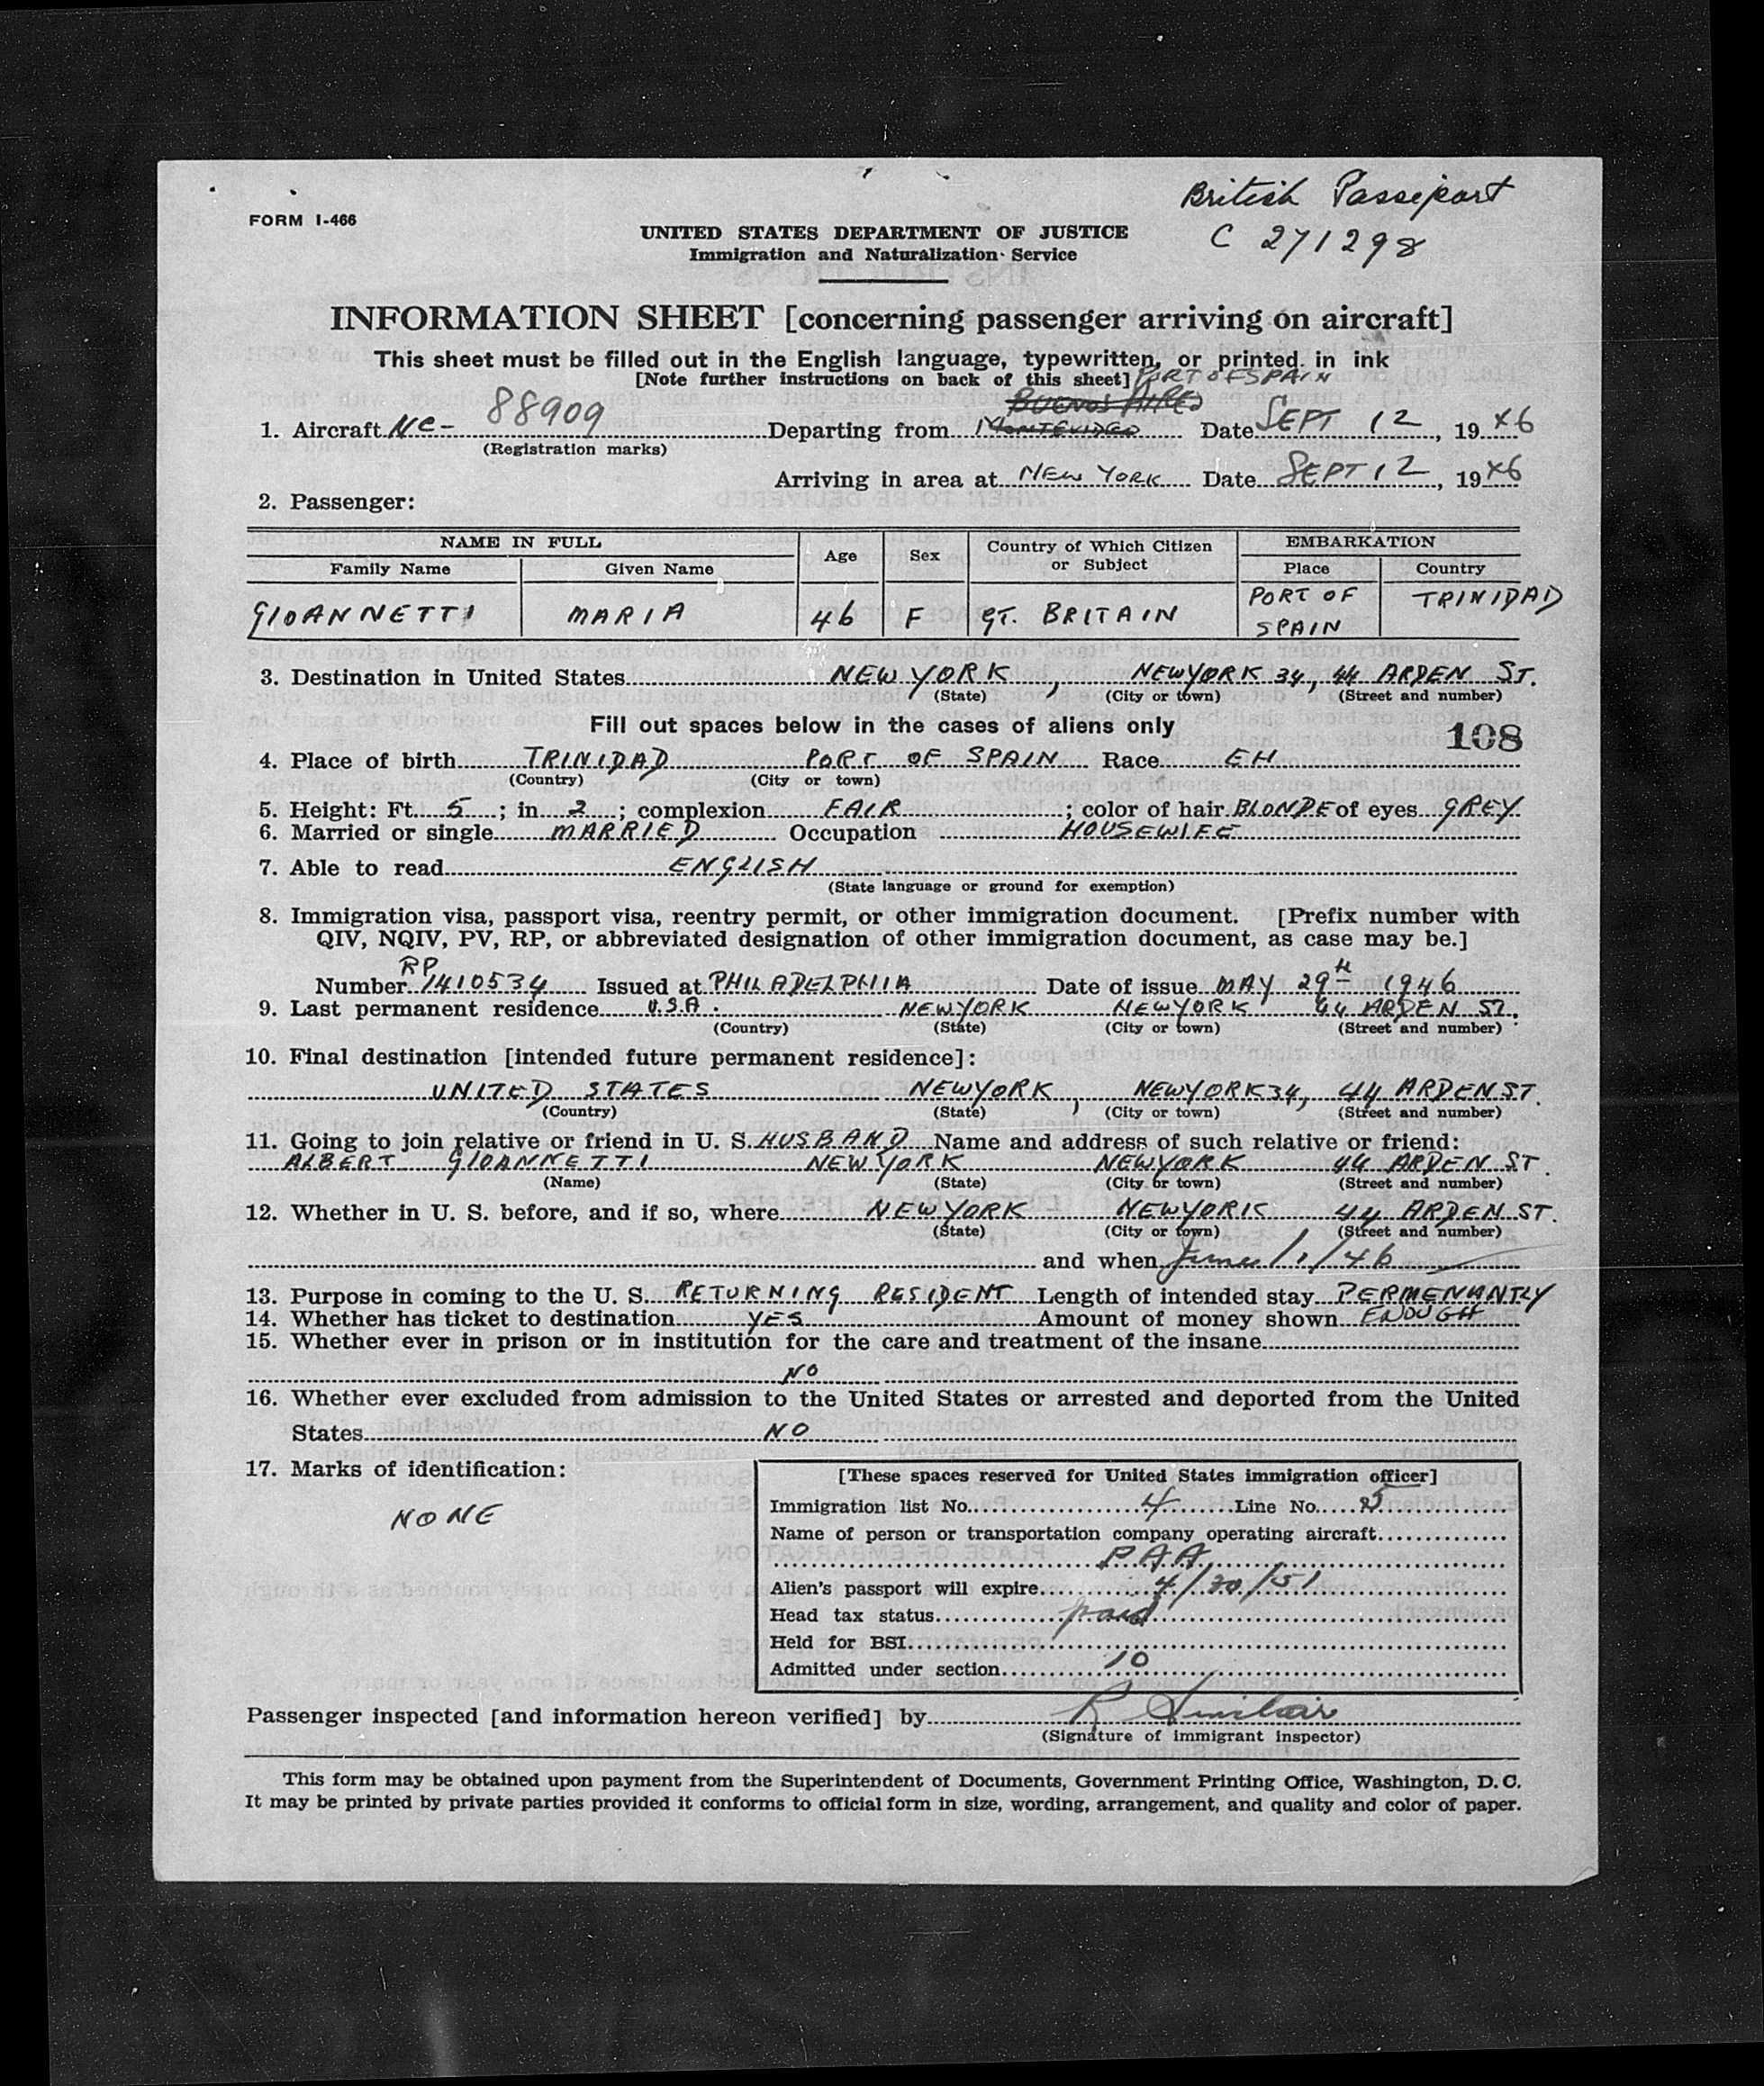 British Passeport
FORM I-466
UNITED STATES DEPARTMENT OF JUSTICE
C 271298
Immigration and Naturalization Service
INFORMATION SHEET [concerning passenger arriving on aircraft]
This sheet must be filled out in the English language, typewritten, or printed in ink
[Note further instructions on back of this sheet] PORT OF SPAIN
BUENOS AIRES
1. Aircraft NC- 88909 Departing from MONTEVIDEO Date SEPT 12, 19 46
(Registration marks)
Arriving in area at NEW YORK Date SEPT 12, 19 46
2. Passenger:
NAME IN FULL Age Sex Country of Which Citizen or Subject EMBARKATION
Family Name Given Name Place Country
GIOANNETTI MARIA 46 F GT. BRITAIN PORT OF SPAIN TRINIDAD
3. Destination in United States NEW YORK, NEWYORK 34, 44 ARDEN ST.
(State) (City or town) (Street and number)
Fill out spaces below in the cases of aliens only
108
4. Place of birth TRINIDAD PORT OF SPAIN Race EH
(Country) (City or town)
5. Height: Ft. 5; in 2; complexion FAIR; color of hair BLONDE of eyes GREY
6. Married or single MARRIED Occupation HOUSEWIFE
7. Able to read ENGLISH
(State language or ground for exemption)
8. Immigration visa, passport visa, reentry permit, or other immigration document. [Prefix number with
QIV, NQIV, PV, RP, or abbreviated designation of other immigration document, as case may be.]
RP
Number 1410534 Issued at PHILADELPHIA Date of issue MAY 29th 1946
9. Last permanent residence U.S.A. NEWYORK NEWYORK 44 ARDEN ST.
(Country) (State) (City or town) (Street and number)
10. Final destination [intended future permanent residence]:
UNITED STATES NEWYORK, NEWYORK 34, 44 ARDEN ST.
(Country) (State) (City or town) (Street and number)
11. Going to join relative or friend in U. S. HUSBAND Name and address of such relative or friend:
ALBERT GIOANNETTI NEW YORK NEWYORK 44 ARDEN ST.
(Name) (State) (City or town) (Street and number)
12. Whether in U. S. before, and if so, where NEW YORK NEWYORK 44 ARDEN ST.
(State) (City or town) (Street and number)
and when June/1/46
13. Purpose in coming to the U. S. RETURNING RESIDENT Length of intended stay PERMENANTLY
14. Whether has ticket to destination YES Amount of money shown ENOUGH
15. Whether ever in prison or in institution for the care and treatment of the insane
NO
16. Whether ever excluded from admission to the United States or arrested and deported from the United
States NO
17. Marks of identification:
NONE
[These spaces reserved for United States immigration officer]
Immigration list No. 4 Line No. 25
Name of person or transportation company operating aircraft
PAA
Alien's passport will expire 4/20/51
Head tax status paid
Held for BSI
Admitted under section 10
Passenger inspected [and information hereon verified] by R Sinclair
(Signature of immigrant inspector)
This form may be obtained upon payment from the Superintendent of Documents, Government Printing Office, Washington, D. C.
It may be printed by private parties provided it conforms to official form in size, wording, arrangement, and quality and color of paper.